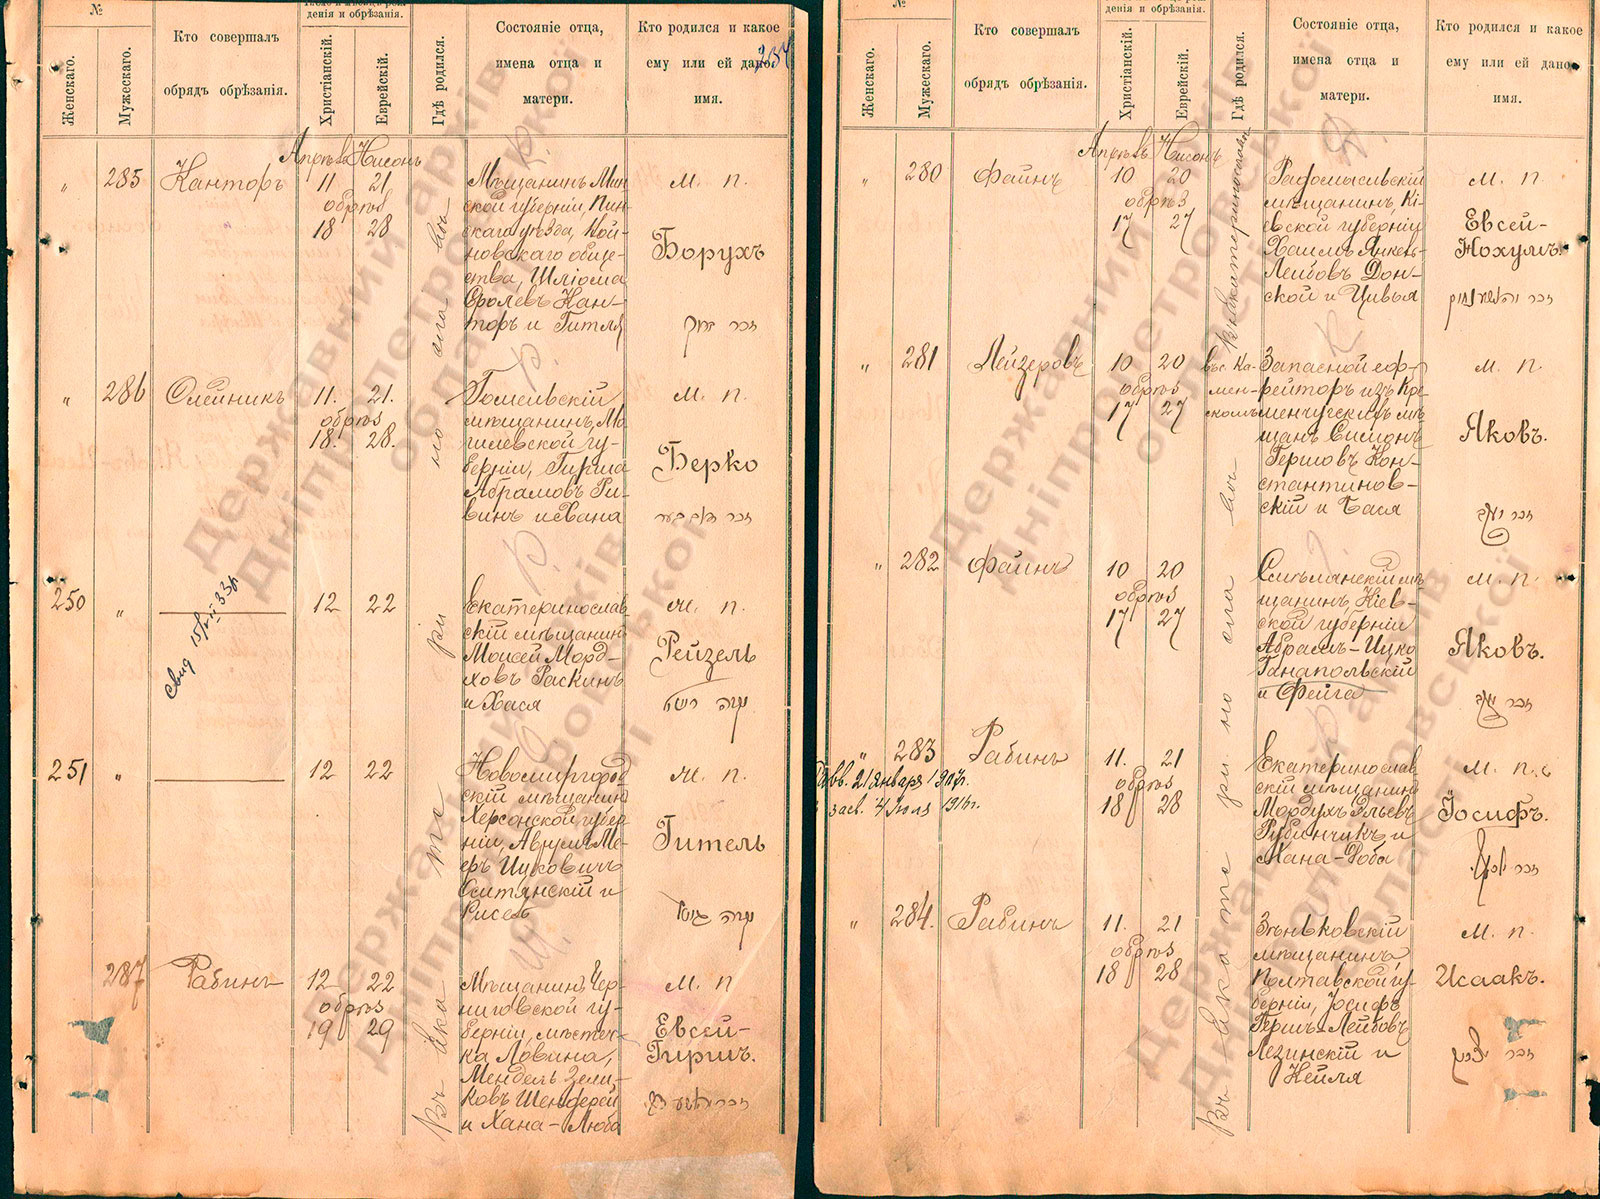 №
Женскаго.
Мужескаго.
Кто совершалъ
обрядъ обрѣзанія.
денія и обрѣзанія.
Христіанскій.
Еврейскій.
Гдѣ родился.
Состояніе отца,
имена отца и
матери.
Кто родился и какое
ему или ей дано
имя.
Апрѣль Нисонъ
" 285 Канторъ 11 21
обрѣз
18 28
Мѣщанинъ Мин-
ской губерніи, Пин-
скаго уѣзда, Кой-
новскаго обще-
ства, Шліома
Сролевъ Кан-
торъ и Гитля
м. п.
Борухъ
" 286 Олейникъ 11. 21.
обрѣз
18. 28.
Гомельскій
мѣщанинъ, Мо-
гилевской гу-
берніи, Гирша
Абрамовъ Ри-
винъ и Хана
м. п.
Берко
250 " 12 22
свид
Екатеринослав-
скій мѣщанинъ
Моисей Морд-
ховъ Раскинъ
и Хася
м. п.
Рейзель
251 " 12 22
Новомиргород
скій мѣщанинъ
Херсонской губер-
ніи, Аврумъ Ме-
еръ Ицковичъ
Смитянскій и
Рисея
м. п.
Гитель
287 Рабинъ 12 22
обрѣз
19 29
Мѣщанинъ Чер-
ниговской гу-
берніи, мѣстеч-
ка Ловина,
Мендель Зели-
ковъ Шендерей
и Хана-Люба
м. п
Евсей-
Гиршъ.
№
Женскаго.
Мужескаго.
Кто совершалъ
обрядъ обрѣзанія.
денія и обрѣзанія.
Христіанскій.
Еврейскій.
Гдѣ родился.
Состояніе отца,
имена отца и
матери.
Кто родился и какое
ему или ей дано
имя.
Апрѣль Нисонъ
" 280 Файнъ 10 20
обрѣз
17 27
Радомысльскій
мѣщанинъ, Кі-
евской губерніи
Хаимъ Янкель
Лейбовъ Дон-
ской и Цивья
м. п.
Евсей-
Нохумъ.
" 281 Лейзеровъ 10 20
обрѣз
17 27
въ с. Ка-
мен-
скомъ
Запасной еф-
рейторъ изъ Кре-
менчугскихъ мѣ-
щанъ Симонъ
Гершовъ Кон-
стантинов-
скій и Бася
м. п.
Яковъ.
" 282 Файнъ 10 20
обрѣз
17 27
Смѣлянскій мѣ
щанинъ, Кіев-
ской губерніи
Абрамъ-Ицко
Ганапольскій
и Фейга
м. п.
Яковъ.
" 283 Рабинъ 11. 21
обрѣз
18 28
21 января 1907г.
засв. 4 Іюля 1916г.
Екатеринослав
скій мѣщанинъ
Мордухъ Эльевъ
Рубинчикъ и
Хана-Роба
м. п.
Іосифъ.
" 284. Рабинъ 11. 21
обрѣз
18 28
Зѣньковскій
мѣщанинъ,
Полтавской гу-
берніи, Іосифъ
Гершъ-Лейбовъ
Лезинскій и
Кейля
м. п.
Исаакъ.
Державний архів
Дніпропетровської
області